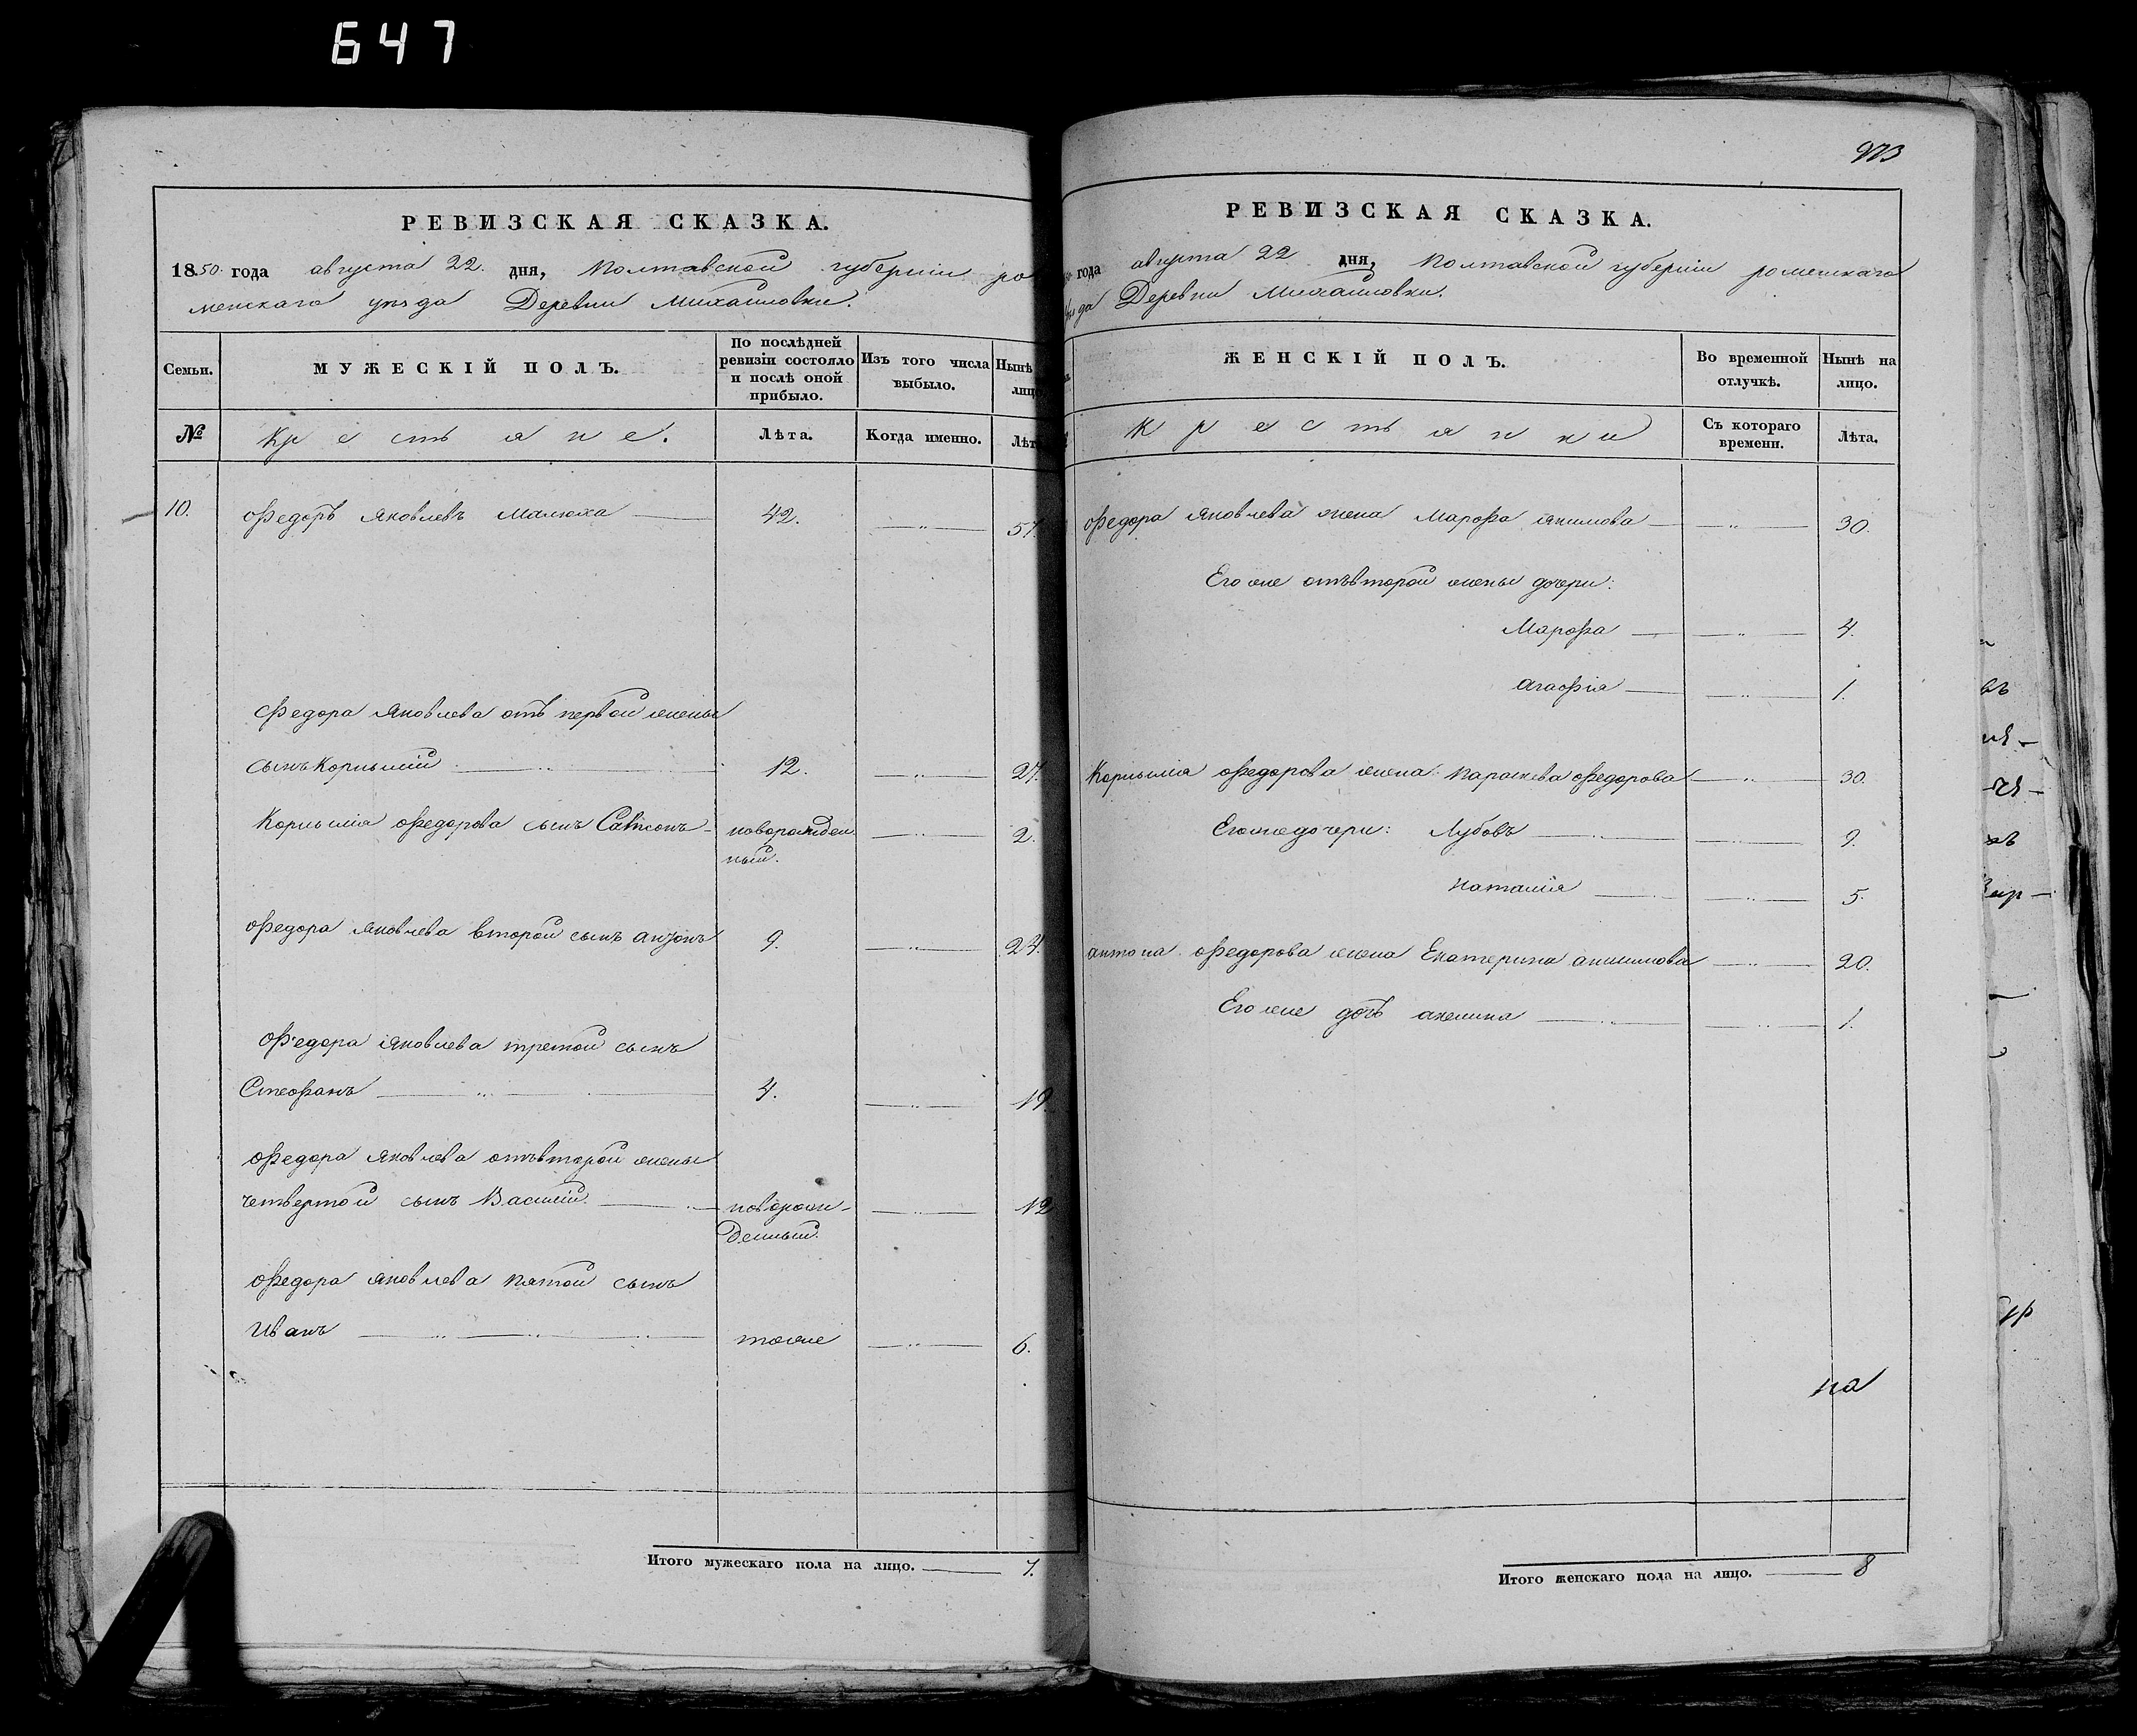 647
РЕВИЗСКАЯ СКАЗКА.
1850. года августа 22. дня, Полтавской губерніи ро
менскаго уѣзда Деревни Михайловки.
Семьи.
МУЖЕСКІЙ ПОЛЪ.
По послѣдней
ревизіи состояло
и послѣ оной
прибыло.
Изъ того числа
выбыло.
Нынѣ
лицо
№
Крестьяне.
Лѣта.
Когда именно.
Лѣт
10. Федоръ Яковлевъ Малюха 42. 57.
Федора Яковлева отъ первой жены
сынъ Корнылій 12. 27.
Корнылія Федорова сынъ Самсонъ новорожден 2.
ный.
Федора Яковлева второй сынъ Антонъ 9. 24.
Федора Яковлева третой сынъ
Стефанъ 4. 19.
Федора Яковлева отъ второй жены
четвертой сынъ Василій новорож- 12
денный.
Федора Яковлева пятой сынъ
Иванъ тоже 6.
Итого мужескаго пола на лицо. 7.
973
РЕВИЗСКАЯ СКАЗКА.
года августа 22 дня, Полтавской губерніи роменскаго
уѣзда Деревни Михайловки.
ЖЕНСКІЙ ПОЛЪ.
Во временной
отлучкѣ.
Нынѣ на
лицо.
Крестьянки
Съ котораго
времени.
Лѣта.
Федора Яковлева жена Марфа Якимова 30.
Его же отъ второй жены дочери:
Марфа 4.
Агафія 1.
Корнылія Федорова жена Параскева Федорова 30.
Его же дочери: Любовъ 9.
Наталія 5.
Антона Федорова жена Екатерина Анисимова 20.
Его же дочь Акелина 1.
на
Итого женскаго пола на лицо. 8